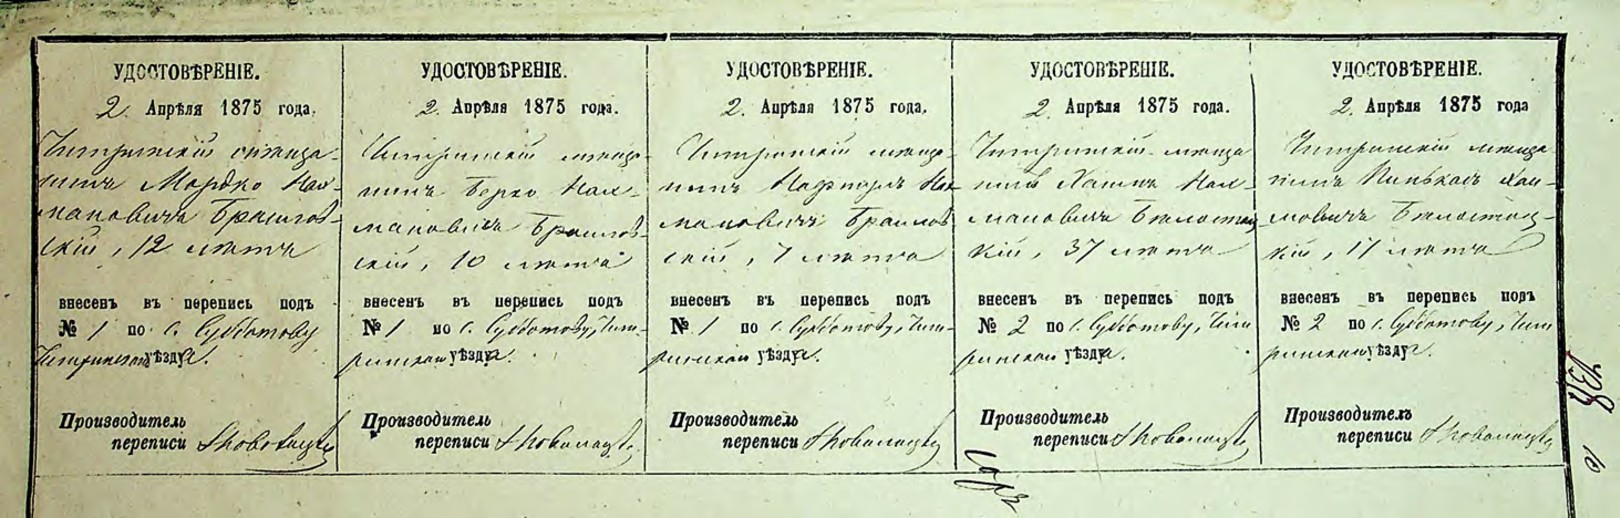 УДОСТОВѢРЕНІЕ.
2 Апрѣля 1875 года.
Чигринскій мѣща-
нинъ Мордко Нах-
мановичъ Браилов-
скій, 12 лѣтъ
внесенъ въ перепись подъ
№ 1 по с. Субботову
Чигринскаго уѣзда.
Производитель
переписи
УДОСТОВѢРЕНІЕ.
2 Апрѣля 1875 года.
Чигринскій мѣща-
нинъ Берко Нах-
мановичъ Браилов-
скій, 10 лѣтъ
внесенъ въ перепись подъ
№ 1 по с. Субботову, Чиг-
ринскаго уѣзда.
Производитель
переписи
УДОСТОВѢРЕНІЕ.
2 Апрѣля 1875 года.
Чигринскій мѣща-
нинъ Нафтулъ Нах-
мановичъ Браилов
скій, 7 лѣтъ
внесенъ въ перепись подъ
№ 1 по с. Субботову, Чиг-
ринскаго уѣзда.
Производитель
переписи
УДОСТОВѢРЕНІЕ.
2 Апрѣля 1875 года.
Чигринскій мѣща
нинъ Хаимъ Нах-
мановичъ Бѣлостоц
кій, 37 лѣтъ
внесенъ въ перепись подъ
№ 2 по с. Субботову, Чиг
ринскаго уѣзда.
Производитель
переписи
УДОСТОВѢРЕНІЕ.
2 Апрѣля 1875 года
Чигринскій мѣща
нинъ Пинькасъ Хаи-
мовичъ Бѣлостоц-
кій, 17 лѣтъ
внесенъ въ перепись подъ
№ 2 по с. Субботову, Чиг
ринскаго уѣзда.
Производитель
переписи